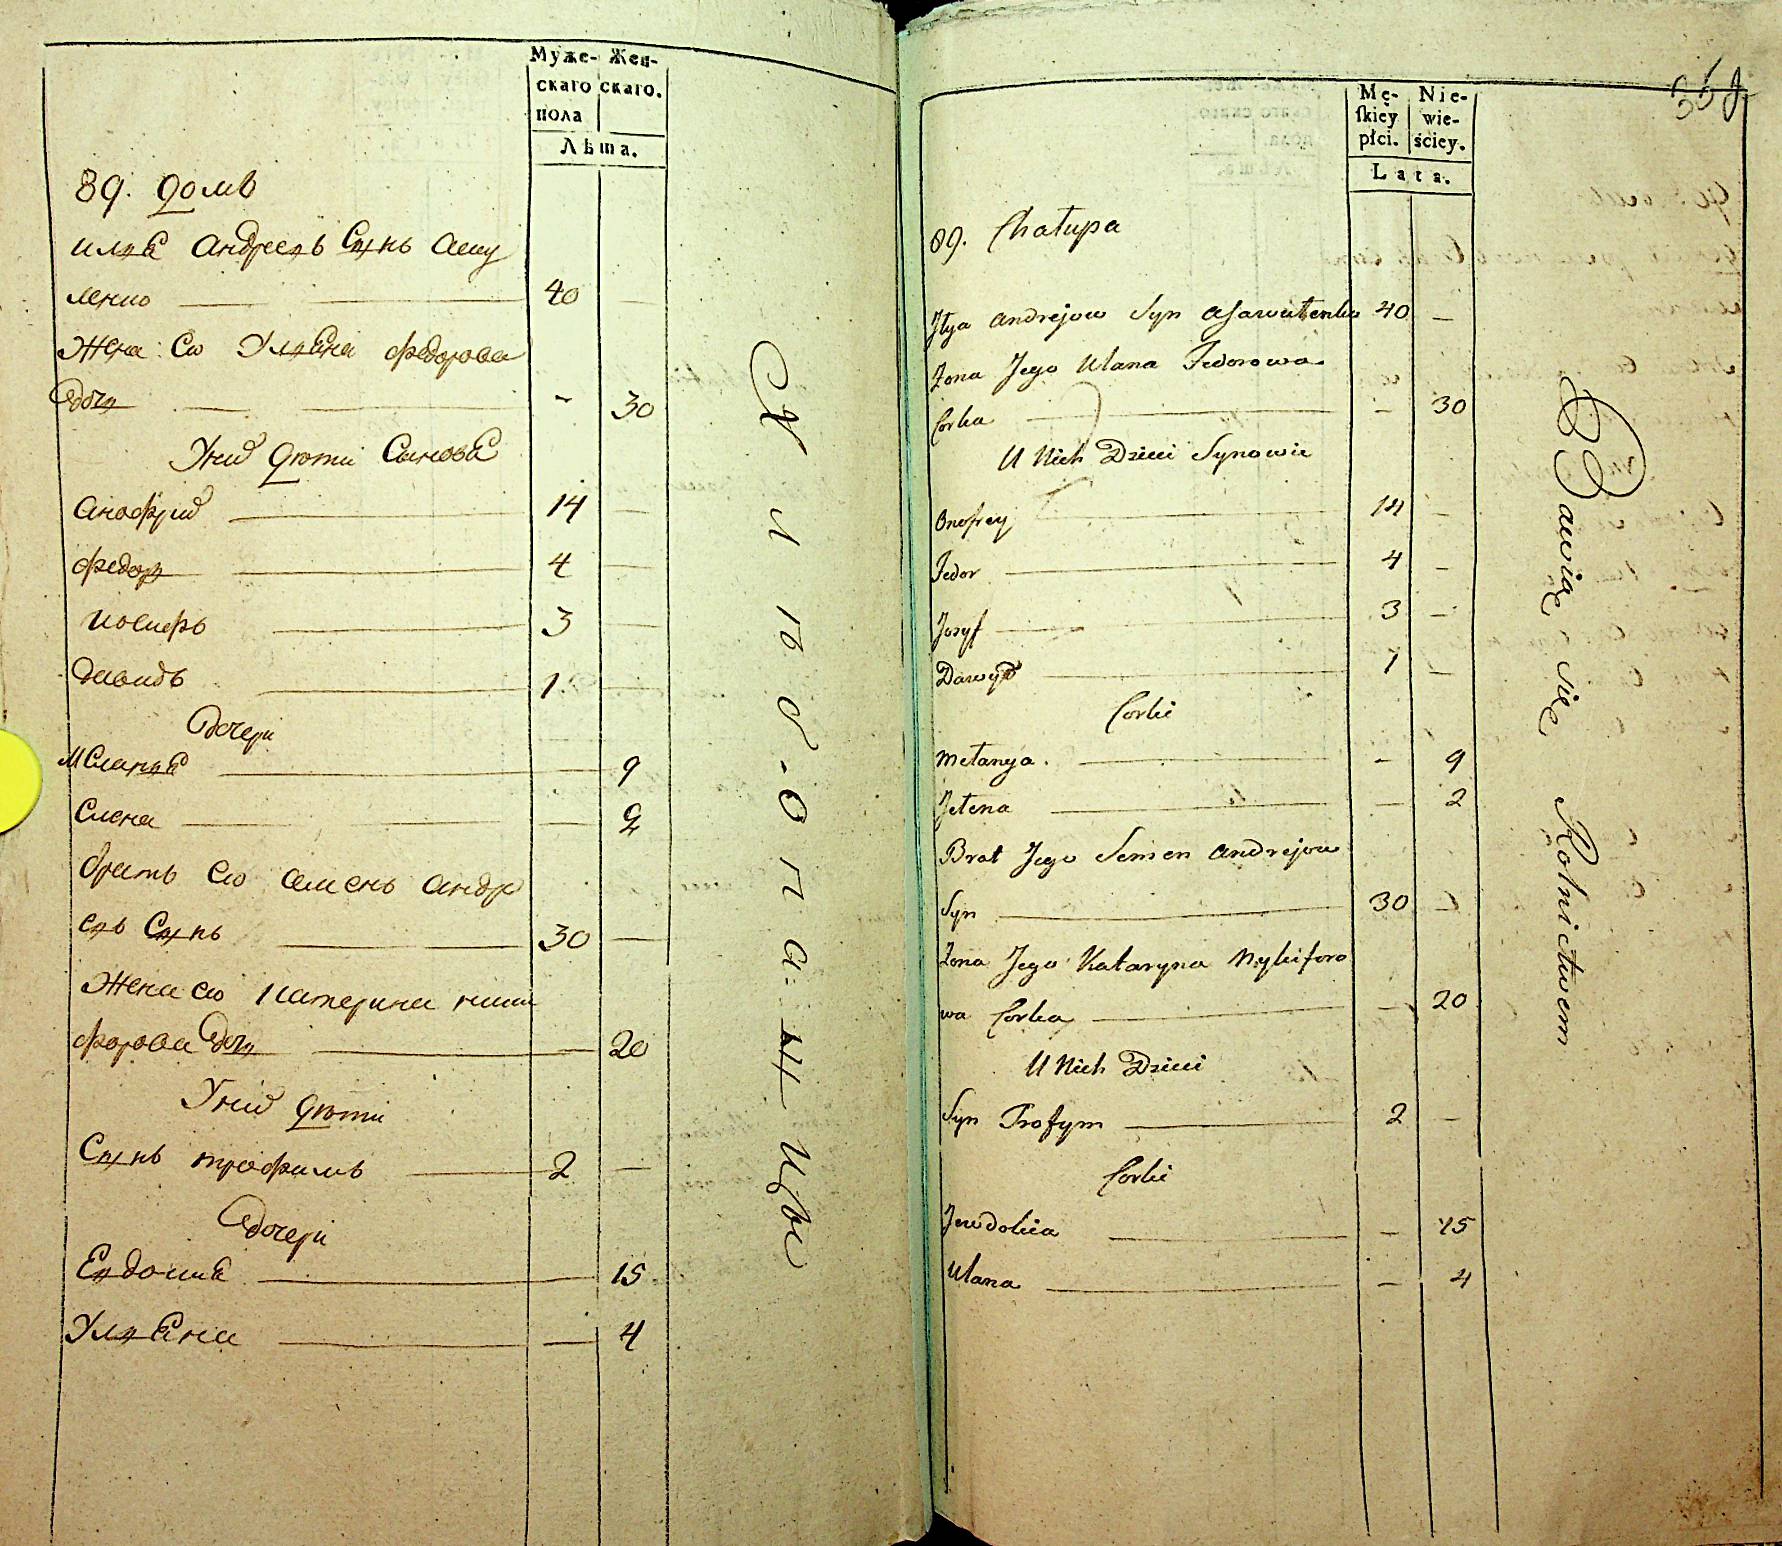 Муже- Жен-
скаго скаго.
пола
Лѣта.
89. домъ
Илья Андреевъ Сынъ
ленко 40
Жена Ево Ульяна Федорова
Дочь - 30
У них Дѣти Сыновья
Анофрий 14
Федор 4
Иосифъ 3
Давидъ 1
Дочери
Меланья 9
Елена 2
братъ Ево Семенъ Андре
евъ Сынъ 30
Жена Ево Катерина Ники
форова Дочь 20
У них Дѣти
Сынъ трофимъ 2
Дочери
Евдокия 15
Ульяна 4
Хлѣбопашцы
Mę- Nie-
ſkiey wie-
płci. ściey.
Lata.
89. Chałupa
Ilya Andrejow Syn 40 -
Żona Jego Ulana Fedorowa
Corka - 30
U Nich Dzieci Synowie
Onofrey 14 -
Fedor 4 -
Jozyf 3 -
Dawyd 1 -
Corki
Mełanya - 9
Jełena - 2
Brat Jego Semen Andrejow
Syn 30 -
Żona Jego Kataryna Nykiforo
wa Corka - 20
U Nich Dzieci
Syn Trofym 2 -
Corki
Jewdokia - 15
Ulana - 4
Bawią się Rolnictwem